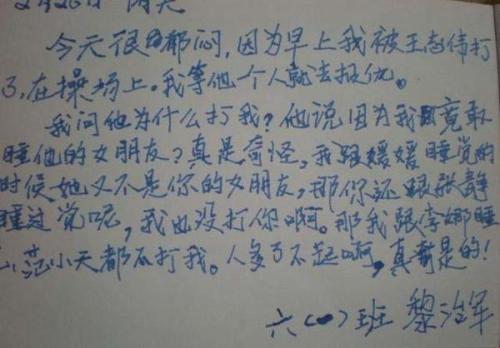 月 日 天
今天很都闷,因为早上我被王志伟打
了,在操场上。我等他个人就去报仇。
我问他为什么打我?他说因为我竟敢
睡他的女朋友?真是奇怪,我跟媛媛睡觉的
时候她又不是你的女朋友,那你还跟张静
睡过觉呢,我也没打你啊。那我跟李娜睡
范小天都不打我。人多了不起啊,真 是的!
六(一)班 黎治军